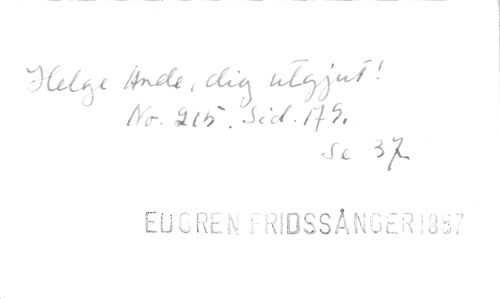 Helge Ande, dig utgjut!
No. 215. Sid. 175.
Se 37
EDGREN FRIDSSÅNGER 1887